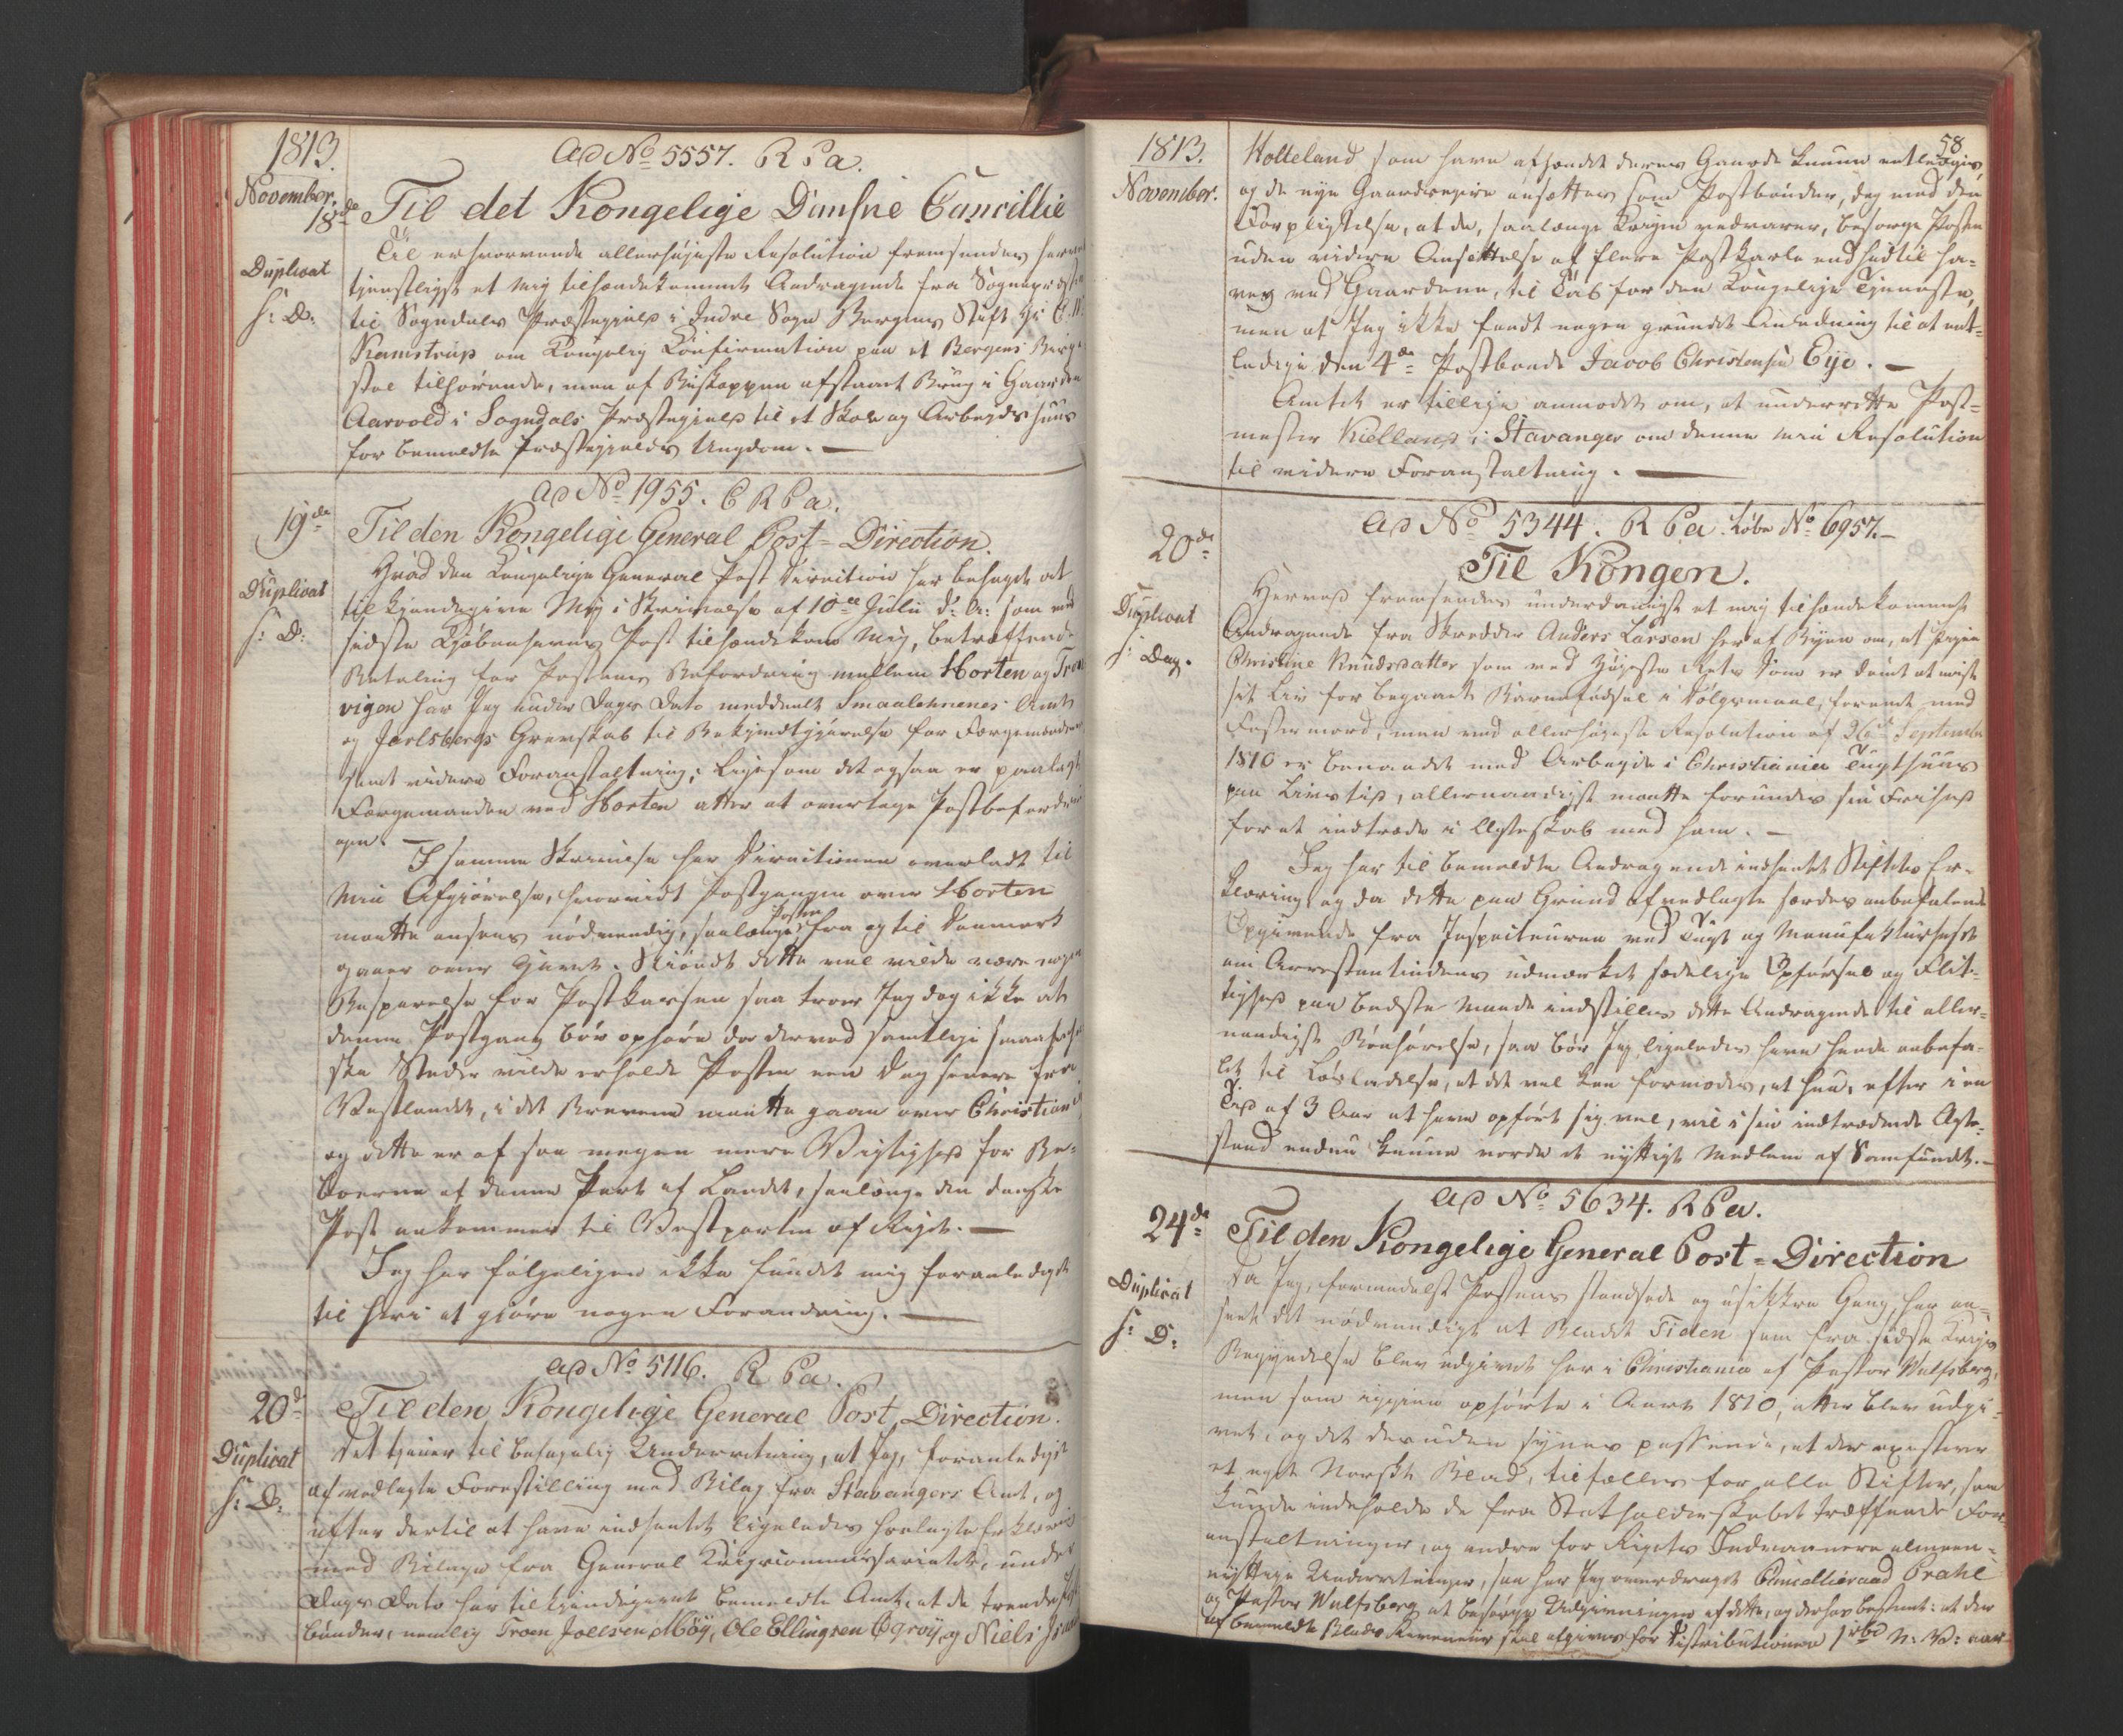 1813.
November.
Ad No 5557. R P a.
18de Til det Kongelige Danske Cancillie
Duplicat
s: D:
Til erhværvende allerhøjeste Resolution fremsendes herved
tjenstligst et mig tilhændekommet Andragende fra Sognepræsten
til Sogndals Præstegjeld i Indre Sogn Bergens Stift Hr
Kamstrup om Kongelig Confirmation paa et Bergens Bispe
stol tilhørende, men af Biskoppen afstaaet Brug i Gaarden
Aarvold i Sogndals Præstegjeld til et Skole og Arbejdshuus
for bemeldte Præstegjelds Ungdom. —
Ad No 1955. C R P a.
19de Til den Kongelige General Post-Direction.
Duplicat
s: D:
Hvad den Kongelige General Post Direction har behaget at
tilkjendegive Mig i Skrivelse af 10de Julii d: A: som med
sidste Kjøbenhavns Post tilhændekom Mig, betræffende
Betaling for Postens Befordring mellem Horten og
vigen har Jeg under Dags Dato meddeelt Smaalehnenes Amt
og Jarlsbergs Grevskab til Bekjendtgjørelse for Færgemændene
samt videre Foranstaltning; ligesom det ogsaa er paalagt
Færgemanden ved Horten atter at overtage Postbeford
gen. —
I samme Skrivelse har Directionen overladt til
Min Afgjørelse, hvorvidt Postgangen over Horten
maatte ansees nødvendig, saalænge Posten fra og til Danmark
gaaer over Hvert. Skiøndt dette vel vilde være nogen
Besparelse for Postkassen saa troer Jeg dog ikke at
denne Postgang bør ophøre da derved samtlige smaalehn
ske Steder vilde erholde Posten een Dag senere fra
Vestlandet, i det Brevene maatte gaae over Christiania
og dette er af saa megen mere Vigtighed for Be-
boerne af denne Part af Landet, saalænge den danske
Post ankommer til Vestparten af Riget. —
Jeg har følgeligen ikke fundet mig foranlediget
til heri at gjøre nogen Forandring. —
Ad No 5116. R P a.
20de Til den Kongelige General Post Direction.
Duplicat
s: D:
Det tjener til behagelig Underretning, at Jeg, foranlediget
af vedlagte Forestilling med Bilag fra Stavangers Amt, og
efter dertil at have indhentet ligeledes hoslagte Erklæring
med Bilage fra General Krigscommissariatet, under
Dags Dato har tilkjendegivet bemeldte Amt, at de trende Post
bønder, nemlig Troen Joelsen Möy, Ole Ellingsen Ogröy, og Niels
1813.
November.
58
Holteland som have afhændet deres Gaarde kunne entlediges,
og de nye Gaardbrugere ansættes som Postbønder, dog med den
Forpligtelse, at de, saalænge Krigen vedvarer, besørge Posten
uden videre Ansættelse af flere Postkarle end hidtil ha-
ves ved Gaardene, til Tab for den Kongelige Tjeneste,
men at Jeg ikke fandt nogen grundet Anledning til at ent-
ledige den 4de Postbonde Jacob Christensen Eije. —
Amtet er tillige anmodet om, at underrette Post-
mester Kielland i Stavanger om denne min Resolution
til videre Foranstaltning. —
Ad No 5344. R P a. Løbe No 6957.—
20de
Til Kongen.
Duplicat
s: Dag.
Herved fremsendes underdanigst et mig tilhændekommet
Andragende fra Skredder Anders Larsen her af Byen om, at Pigen
Christine Knudsdatter som ved Højeste Rets Dom er dømt at miste
sit Liv for begaaet Barnefødsel i Dølgsmaal, forenet med
Fostermord, men ved allerhøjeste Resolution af 26de September
1810 er benaadet med Arbejde i Christiania Tugthuus
paa Livstid, allernaadigst maatte forundes sin Frihed
for at indtræde i Ægteskab med ham. —
Jeg har til bemeldte Andragende indhentet Stiftets Er-
klæring, og da dette paa Grund af vedlagte særdeles anbefalende
Opgivende fra Inspecteuren ved Tugt og Manufakturhuset
om Arrestantindens udmærket sædelige Opførsel og Flit-
tighed paa bedste Maade indstiller dette Andragende til aller-
naadigst Bønhørelse, saa bør Jeg ligeledes have hende anbefa-
let til Løsladelse, at det vel kan formodes, at hun, efter i en
Tid af 3 Aar at have opført sig vel, vil i sin indtrædende Ægte-
stand endnu kunne vorde et nyttigt Medlem af Samfundet. —
Ad No 5634. R P a.
24de Til den Kongelige General Post-Direction
Duplicat
s: D:
Da Jeg, formedelst Postens standsede og usikkre Gang, har an-
seet det nødvendigt at Bladet Tiden som fra sidste Krigs
Begyndelse blev udgivet her i Christiania af Pastor Wulfsberg,
men som igjen ophørte i Aaret 1810, atter blev udgi-
vet, og det desuden synes passende, at der existerer
et eget Norskt Blad, tilfælles for alle Stifter, som
kunde indeholde de fra Statholderskabet træffende For-
anstaltninger, og andre for Rigets Indvaanere almeen-
nyttige Underretninger, saa har Jeg overdraget Cancellieraad Prahl
og Pastor Wulfsberg at besørge Udgivningen af dette, og derhos bestemt: at der
af bemeldte Blads Revenuer skal afgives for Distributionen 1 rbd N: V: aar-